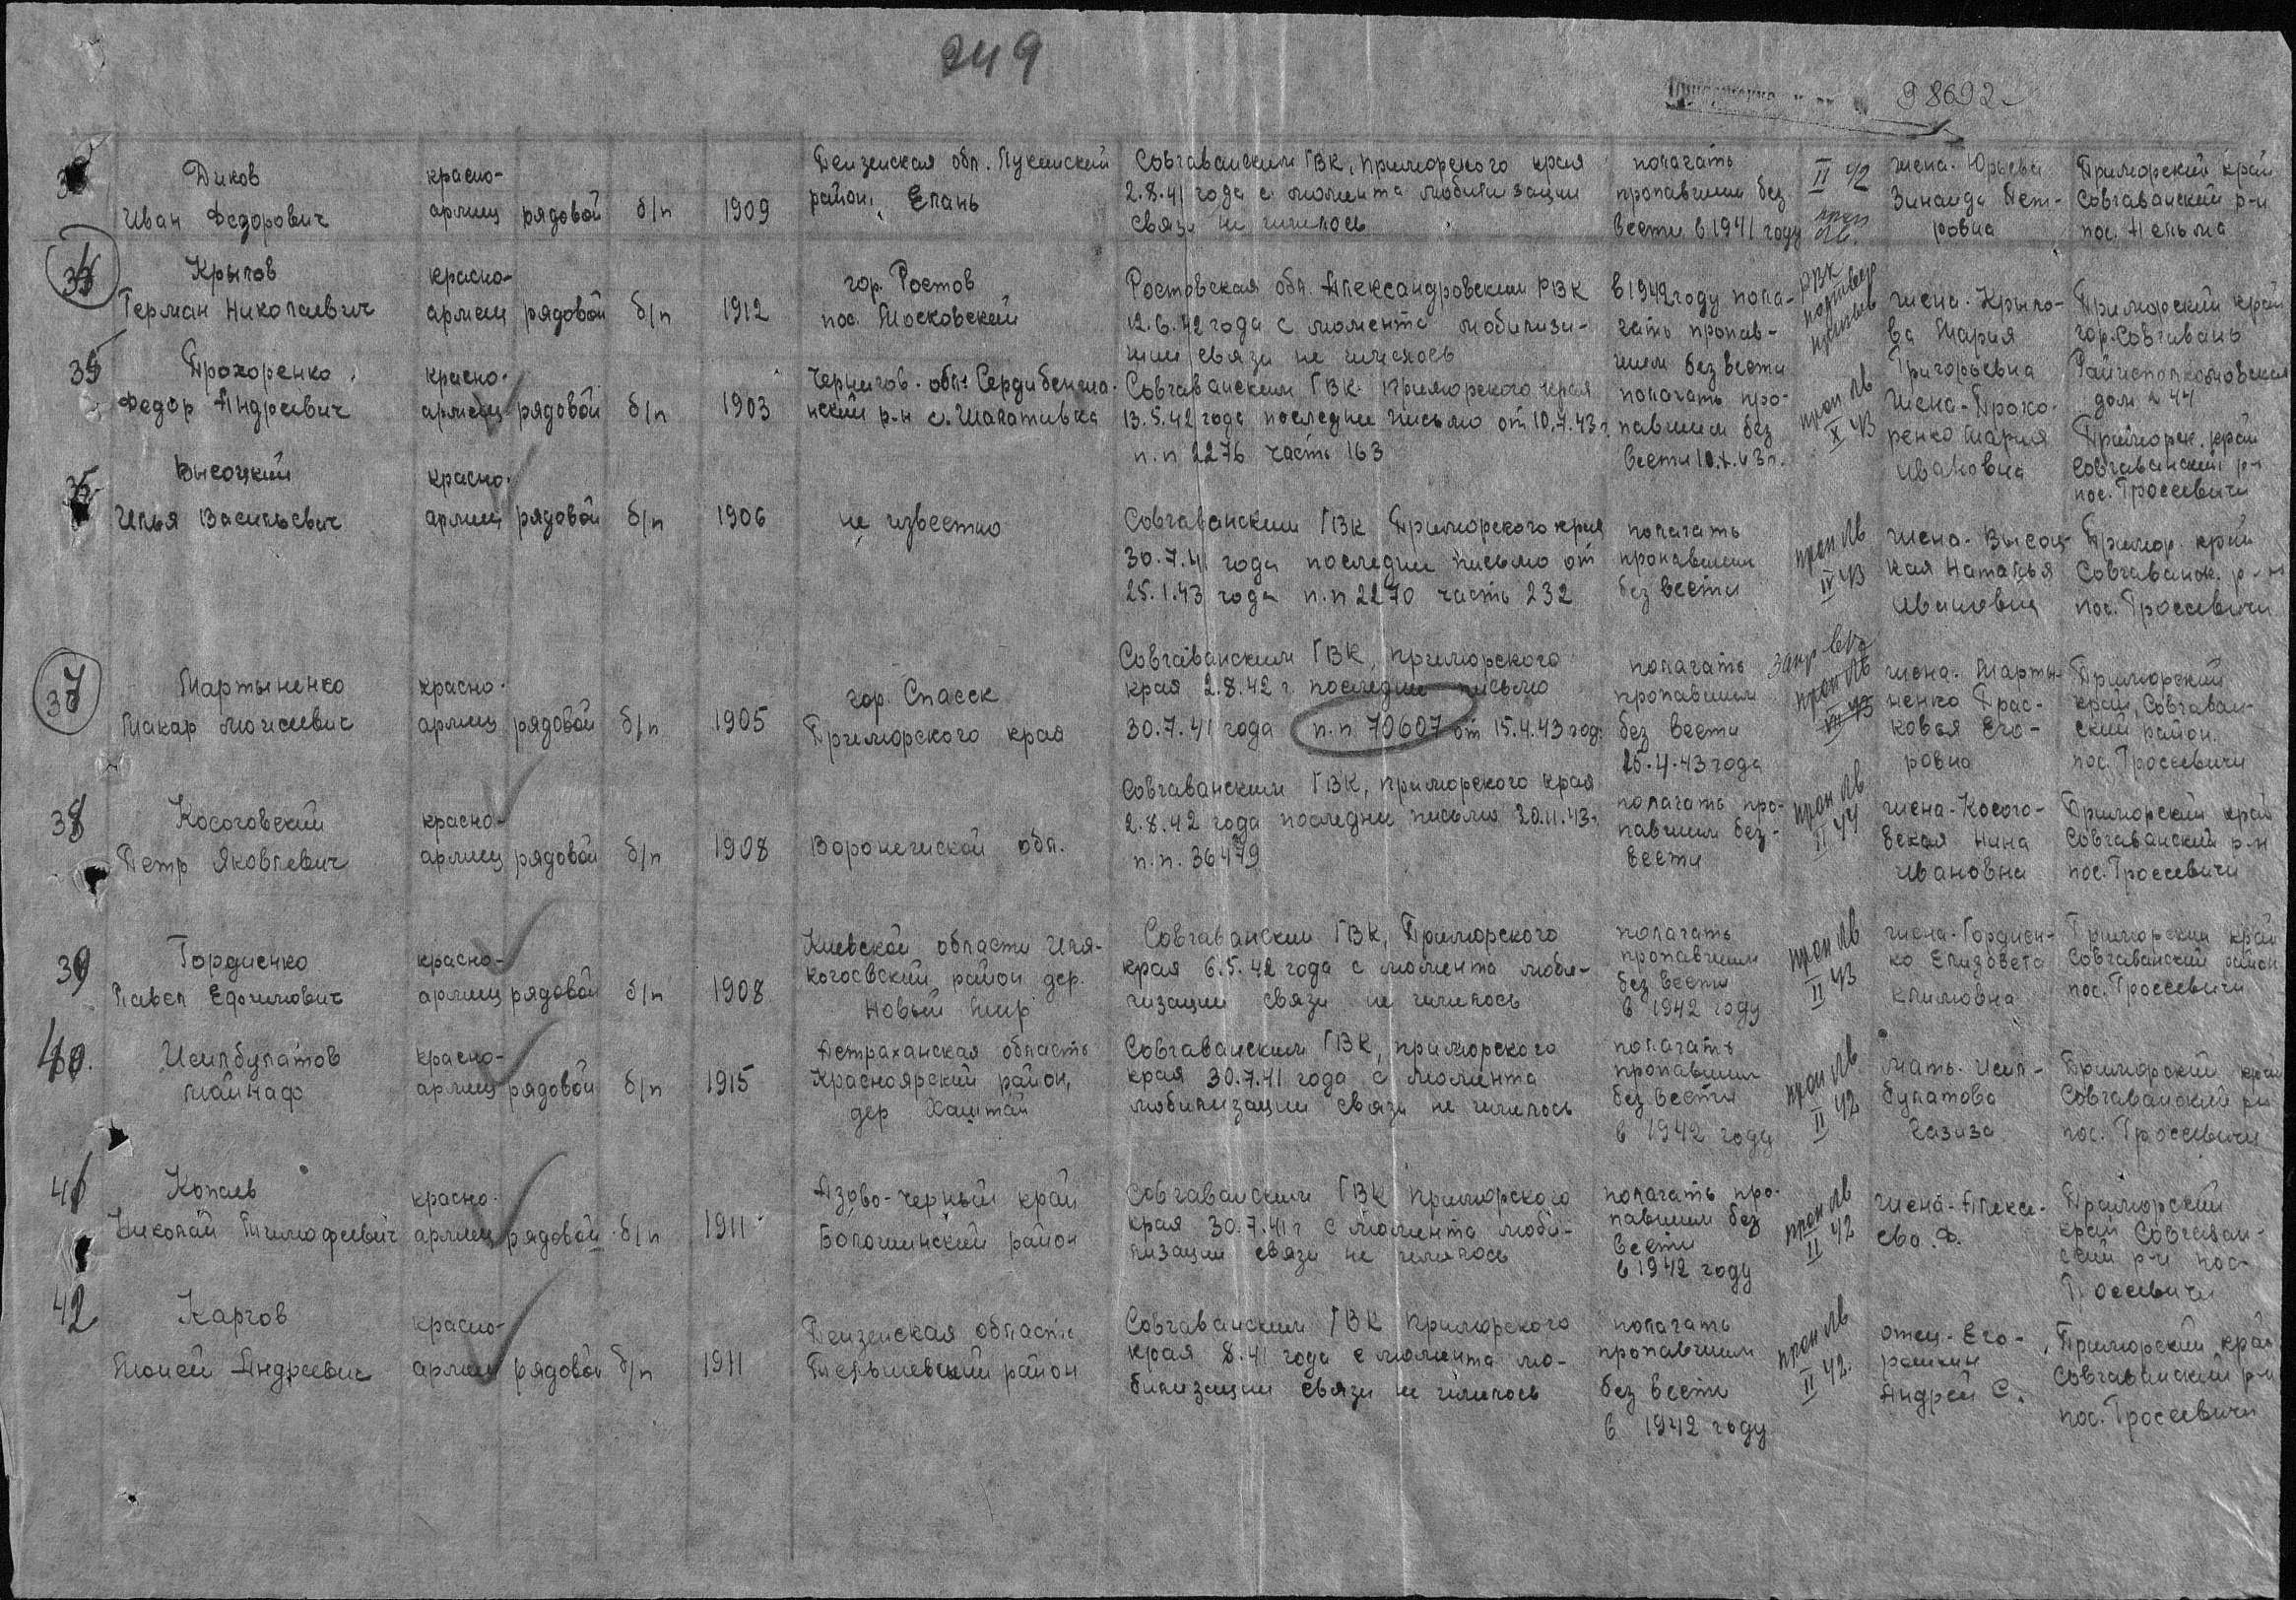 249
98692
Диков
Иван Федорович
красно-
армеец рядовой б/п 1909
Пензенская обл.
район, Елань
Совгаванским ГВК, Приморского края
2.8.41 года с момента мобилизации
связи не имелось
полагать
пропавшим без
вести в 1941 году
II 42
жена. Юрьева
Зинаида Пет-
ровна
Приморский край
Совгаванский р-н
пос. Нельма
Крылов
Герман Николаевич
красно-
армеец рядовой б/п 1912
гор. Ростов
пос. Московский
Ростовская обл. Александровским РВК
12.6.42 года с момента мобилиза-
ции связи не имелось
в 1942 году пола-
гать пропав-
шим без вести
РВК
жена. Крыло-
ва Мария
Григорьевна
Приморский край
гор. Совгавань
Райисполкомовская
дом 2 44
35
Прохоренко
Федор Андреевич
красно-
армеец рядовой б/п 1903
Чернигов. обл.
р-н с.
Совгаванским ГВК Приморского края
13.5.42 года последнее письмо от 10.7.43 г.
п.п 2276 часть 163
полагать про-
павшим без
вести 10.X.43 г.
проп Лв
X 43
жена-Прохо-
ренко Мария
Ивановна
Приморск. край
Совгаванский р-н
пос. Гроссевичи
Высоцкий
Илья Васильевич
красно-
армеец рядовой б/п 1906
не известно
Совгаванским ГВК Приморского края
30.7.41 года последнее письмо от
25.1.43 года п.п 2270 часть 232
полагать
пропавшим
без вести
проп Лв
IV 43
жена. Высоц-
кая Наталья
Ивановна
Примор. край
Совгаванск. р-н
пос. Гроссевичи
37
Мартыненко
Макар Моисеевич
красно-
армеец рядовой б/п 1905
гор. Спасск
Приморского края
Совгаванским ГВК, приморского
края 2.8.42 г. последнее письмо
30.7.41 года п.п 70607 от 15.4.43 год.
полагать
пропавшим
без вести
25.4.43 года
проп Лв
жена. Марты-
ненко Прас-
ковья Его-
ровна
Приморский
край, Совгаван-
ский район.
пос. Гроссевичи
38
Косоговский
Петр Яковлевич
красно-
армеец рядовой б/п 1908
Воронежской обл.
Совгаванским ГВК, приморского края
2.8.42 года последнее письмо 20.11.43 г.
п.п. 36479
полагать про-
павшим без-
вести
проп Лв
II 44
жена-Косого-
вская Нина
Ивановна
Приморский край
Совгаванский р-н
пос. Гроссевичи
39
Гордиенко
Павел Ефимович
красно-
армеец рядовой б/п 1908
Киевской области
район дер.
Новый Мир
Совгаванским ГВК, Приморского
края 6.5.42 года с момента моби-
лизации связи не имелось
полагать
пропавшим
без вести
в 1942 году
проп Лв
II 43
жена-Гордиен-
ко Елизовета
Климовна
Приморский край
Совгаванский район
пос. Гроссевичи
40.
Исилбулатов
Майнаф
красно-
армеец рядовой б/п 1915
Астраханская область
Красноярский район,
дер.
Совгаванским ГВК, приморского
края 30.7.41 года с момента
мобилизации связи не имелось
полагать
пропавшим
без вести
в 1942 году
проп Лв
II 42
мать. Исил-
булатова
Казиза
Приморский край
Совгаванский р-н
пос. Гроссевичи
41
Копаев
Николай Тимофеевич
красно-
армеец рядовой б/п 1911
Азово-черный край
район
Совгаванским ГВК приморского
края 30.7.41 г с момента моби-
лизации связи не имелось
полагать про-
павшим без
вести
в 1942 году
проп Лв
II 42
жена-Алексе-
ева. Ф.
Приморский
край Совгаван-
ский р-н пос
Гроссевичи
42
Каргов
Моисей Андреевич
красно-
армеец рядовой б/п 1911
Пензенская область
район
Совгаванским ГВК Приморского
края 8.41 года с момента мо-
билизации связи не имелось
полагать
пропавшим
без вести
в 1942 году
проп Лв
II 42.
отец-Его-
рашкин
Андрей С.
Приморский край
Совгаванский р-н
пос. Гроссевичи